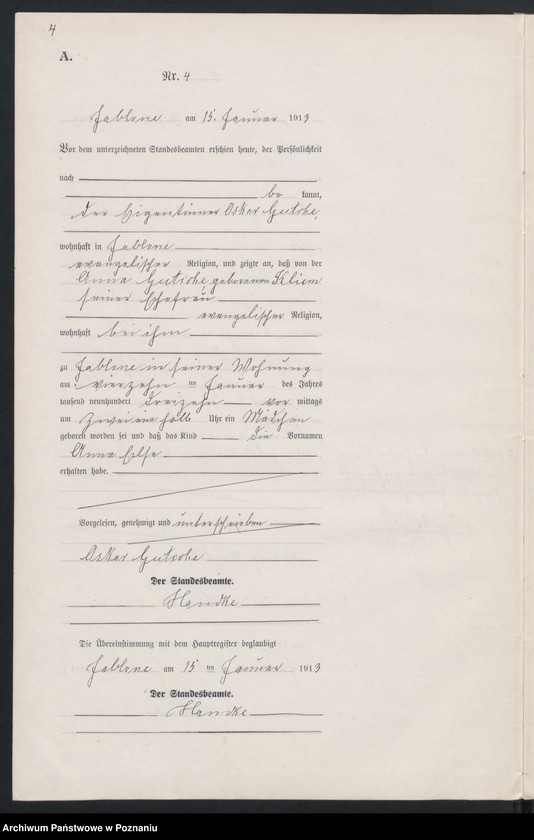 4
A.
Nr. 4
Jablone am 15. Januar 1913
Vor dem unterzeichneten Standesbeamten erschien heute, der Persönlichkeit
nach
be kannt,
der Eigentümer Oskar Gutsche,
wohnhaft in Jablone
evangelischer Religion, und zeigte an, daß von der
Anna Gutsche geborenen Kliem
seiner Ehefrau
evangelischer Religion,
wohnhaft bei ihm
zu Jablone in seiner Wohnung
am vierzehn ten Januar des Jahres
tausend neunhundert dreizehn vor mittags
um zwei ein halb Uhr ein Mädchen
geboren worden sei und daß das Kind die Vornamen
Anna Else
erhalten habe.
Vorgelesen, genehmigt und unterschrieben
Oskar Gutsche
Der Standesbeamte.
Handke
Die Übereinstimmung mit dem Hauptregister beglaubigt
Jablone am 15 ten Januar 1913
Der Standesbeamte.
Handke
Archiwum Państwowe w Poznaniu